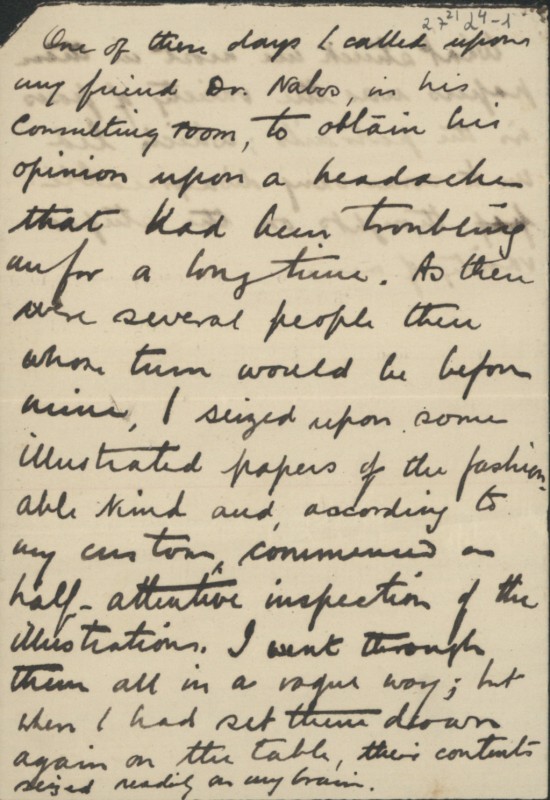 27²¹ d⁴-1
One of these days I called upon
my friend Dr. Nabos, in his
consulting room, to obtain his
opinion upon a headache
that had been troubling
me for a long time. As there
were several people there
whose turn would be before
mine, I seized upon some
illustrated papers of the fashion-
able kind and, according to
my custom, commenced an
half-attentive inspection of the
illustrations. I went through
them all in a vague way; but
when I had set them down
again on the table, their contents
seized readily on my brain.